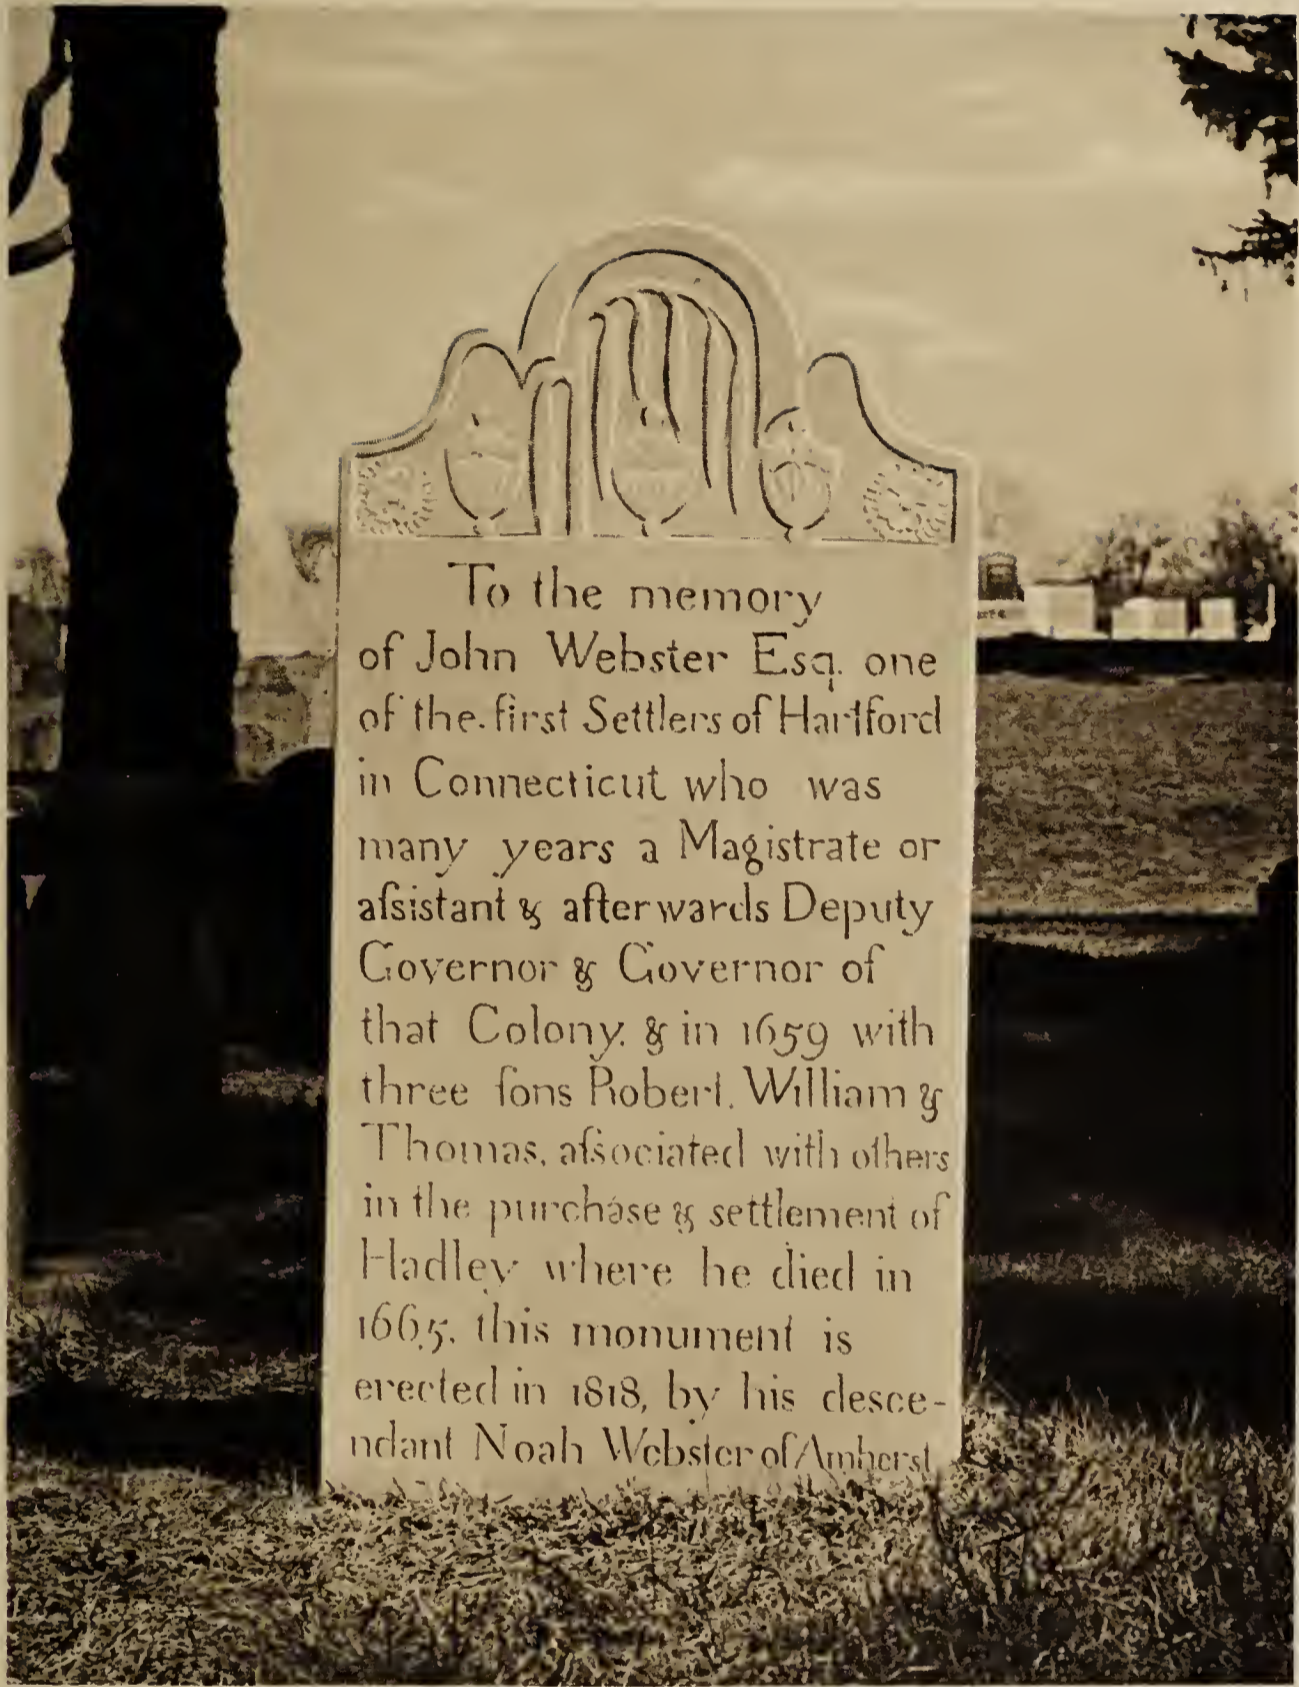 To the memory
of John Webster Esq. one
of the first Settlers of Hartford
in Connecticut who was
many years a Magistrate or
aſsistant & afterwards Deputy
Governor & Governor of
that Colony. & in 1659 with
three ſons Robert. William &
Thomas, aſsociated with others
in the purchase & settlement of
Hadley where he died in
1665. this monument is
erected in 1818, by his desce-
ndant Noah Webster of Amherst